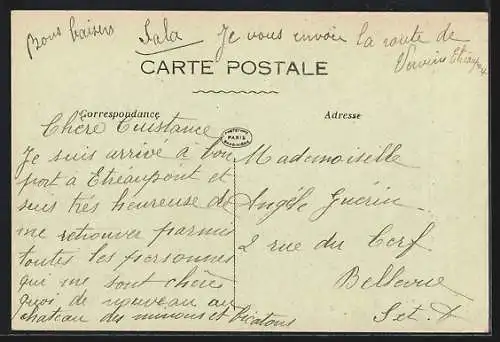 Bons baisers Lala Je vous envoie la route de
Vervins Etréaupont
CARTE POSTALE
Correspondance
Adresse
PARIS
Chère
Je suis arrivé à bon
port à Etréaupont et
suis très heureuse de
me retrouver parmis
toutes les personnes
qui me sont chères
quoi de nouveau au
chateau des minons et
Mademoiselle
Angèle Guérin
2 rue du Cerf
Bellevue
Set. O